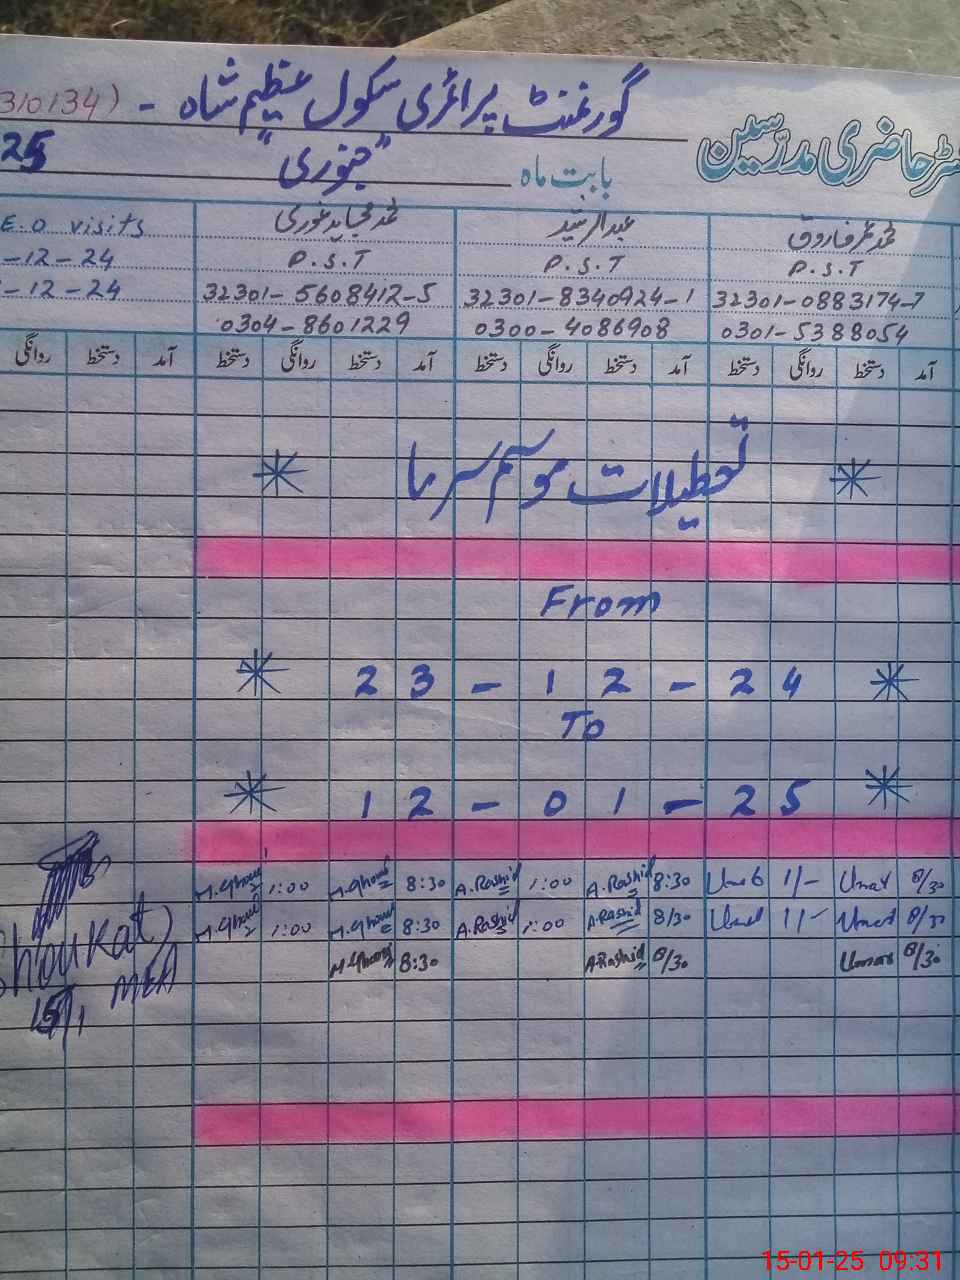 گورنمنٹ پرائمری سکول عظیم شاہ - (310134
رجسٹر حاضری مدرسین
بابت ماہ "جنوری" 25
محمد عمر فاروق عبدالرشید محمد مجاہد غوری E.O visits
P.S.T P.S.T P.S.T -12-24
32301-0883174-7 32301-8340924-1 32301-5608412-5 -12-24
0301-5388054 0300-4086908 0304-8601229
آمد دستخط روانگی دستخط آمد دستخط روانگی دستخط آمد دستخط روانگی دستخط آمد دستخط روانگی
* تعطیلات موسم سرما *
From
* 23-12-24 *
To
* 12-01-25 *
M.Ghouri 1:00 M.Ghouri 8:30 A.Rashid 1:00 A.Rashid 8:30 Umar 1/- Umar 8/30
M.Ghouri 1:00 M.Ghouri 8:30 A.Rashid 1:00 A.Rashid 8/30 Umar 1/- Umar 8/30
M.Ghouri 8:30 A.Rashid 8/30 Umar 8/30
Shoukat
15/1 MEA
15-01-25 09:31